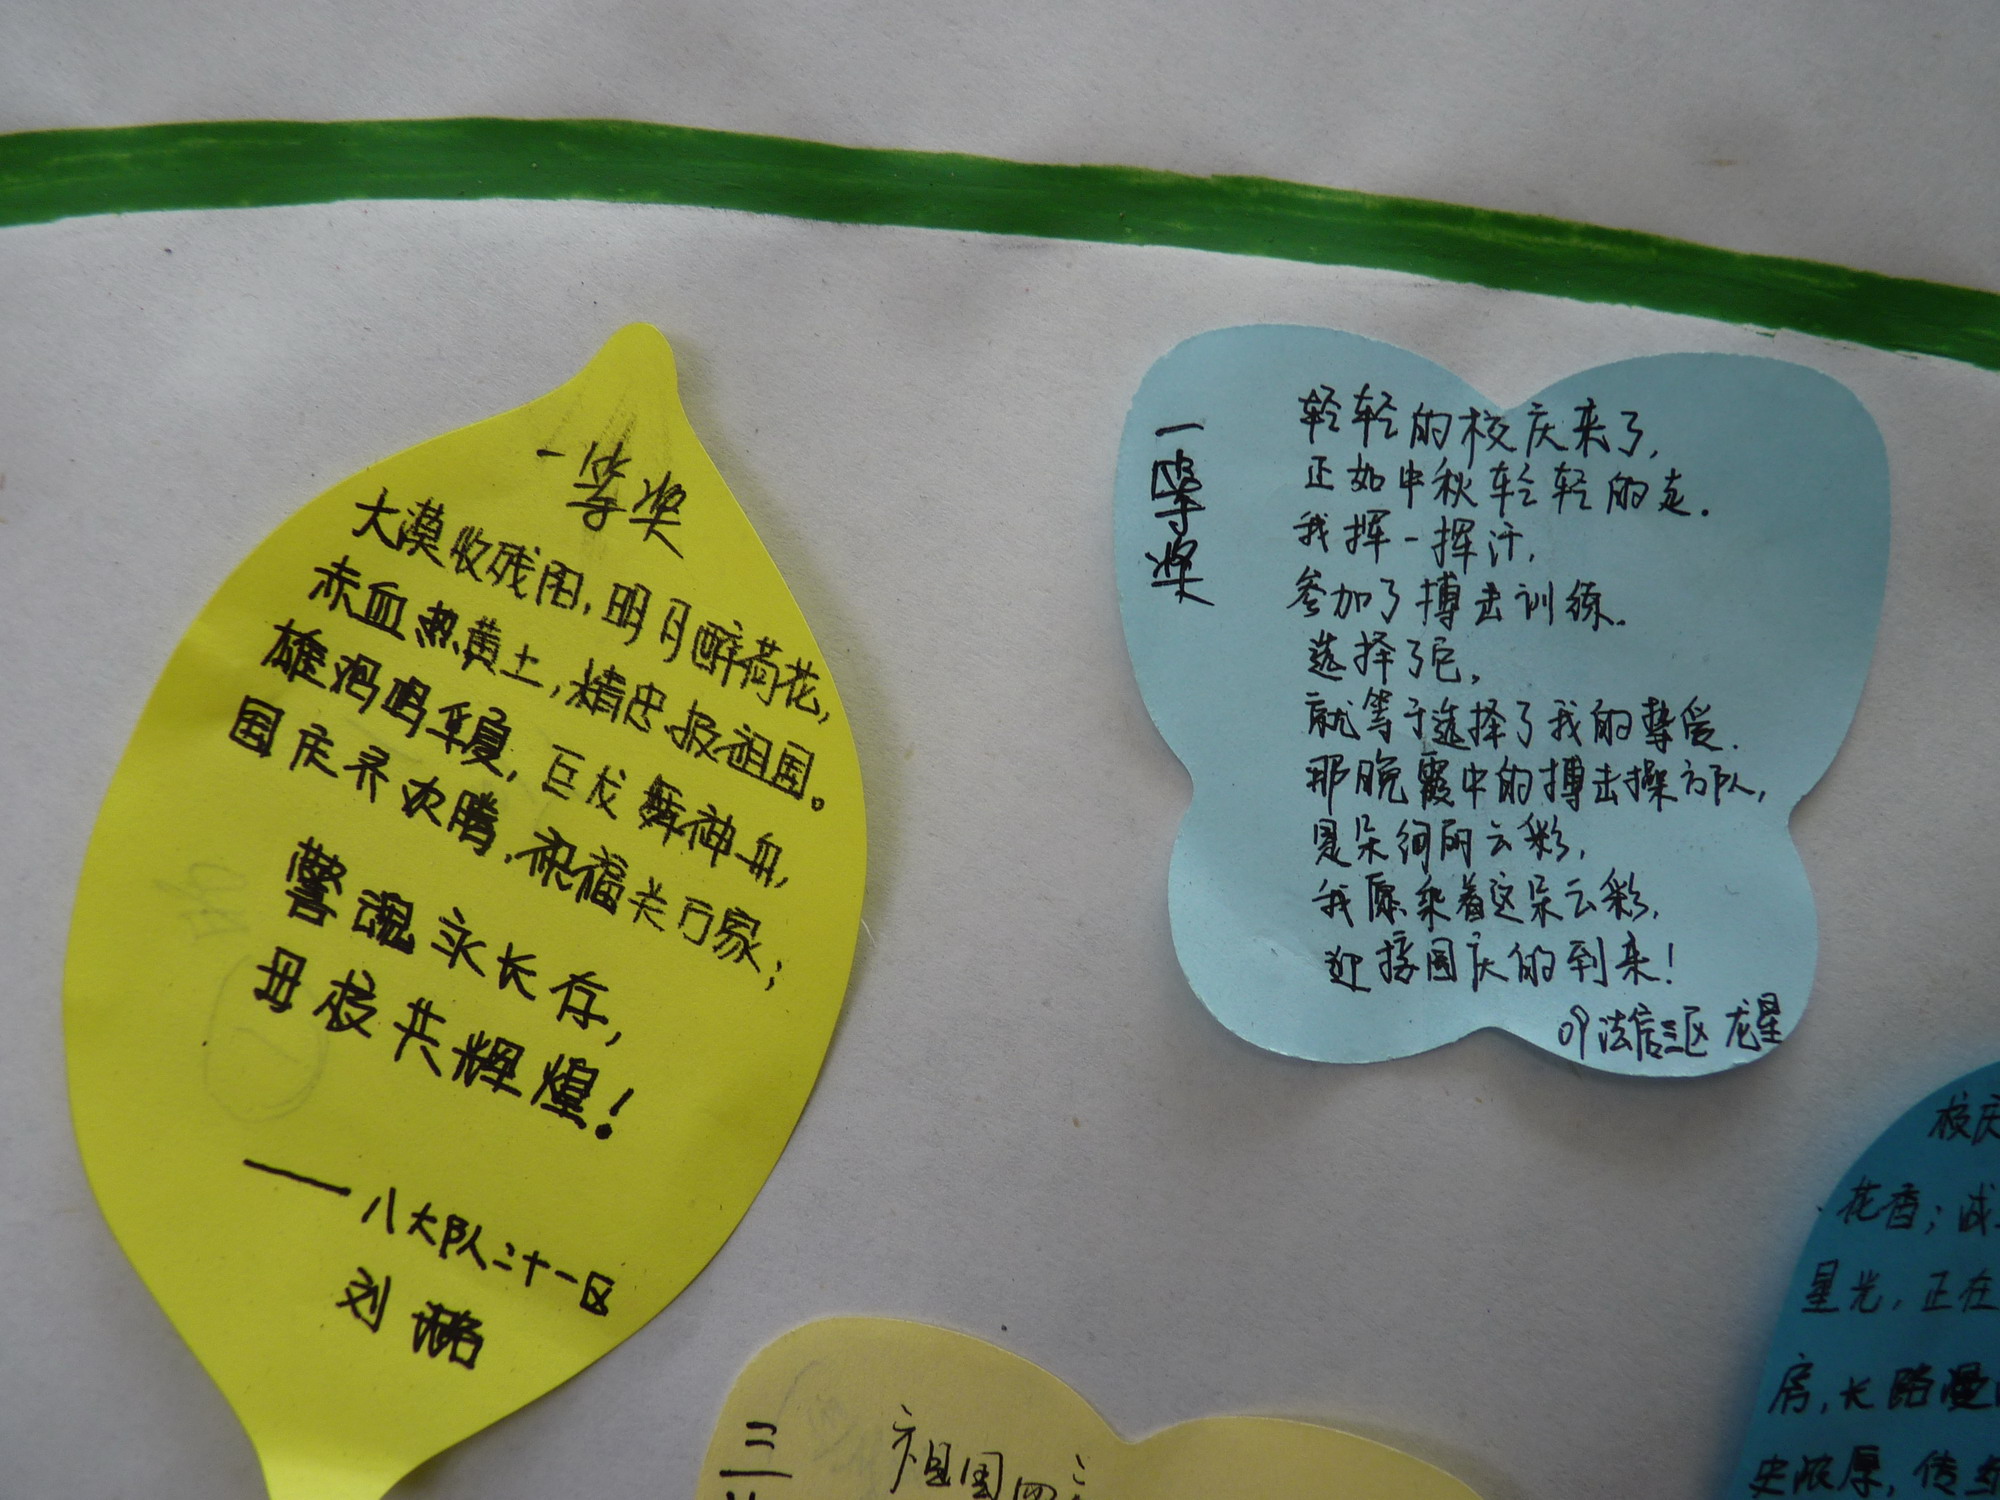 一等奖
大漠收残阳，明月醉荷花，
赤血热黄土，精忠报祖国。
雄鸡鸣华夏，巨龙舞神州，
国庆齐欢腾，祝福送万家；
警魂永长存，
母校共辉煌！
——八大队二十一区
刘璐
一等奖
轻轻的校庆来了，
正如中秋轻轻的走．
我挥一挥汗，
参加了搏击训练．
选择了它，
就等于选择了我的挚爱．
那晚霞中的搏击操方队，
是朵绚丽云彩，
我愿乘着这朵云彩，
迎接国庆的到来！
09法侦三区 龙星
校庆
花香；
星光，正在
房，长路漫
史浓厚，传
三
祖国